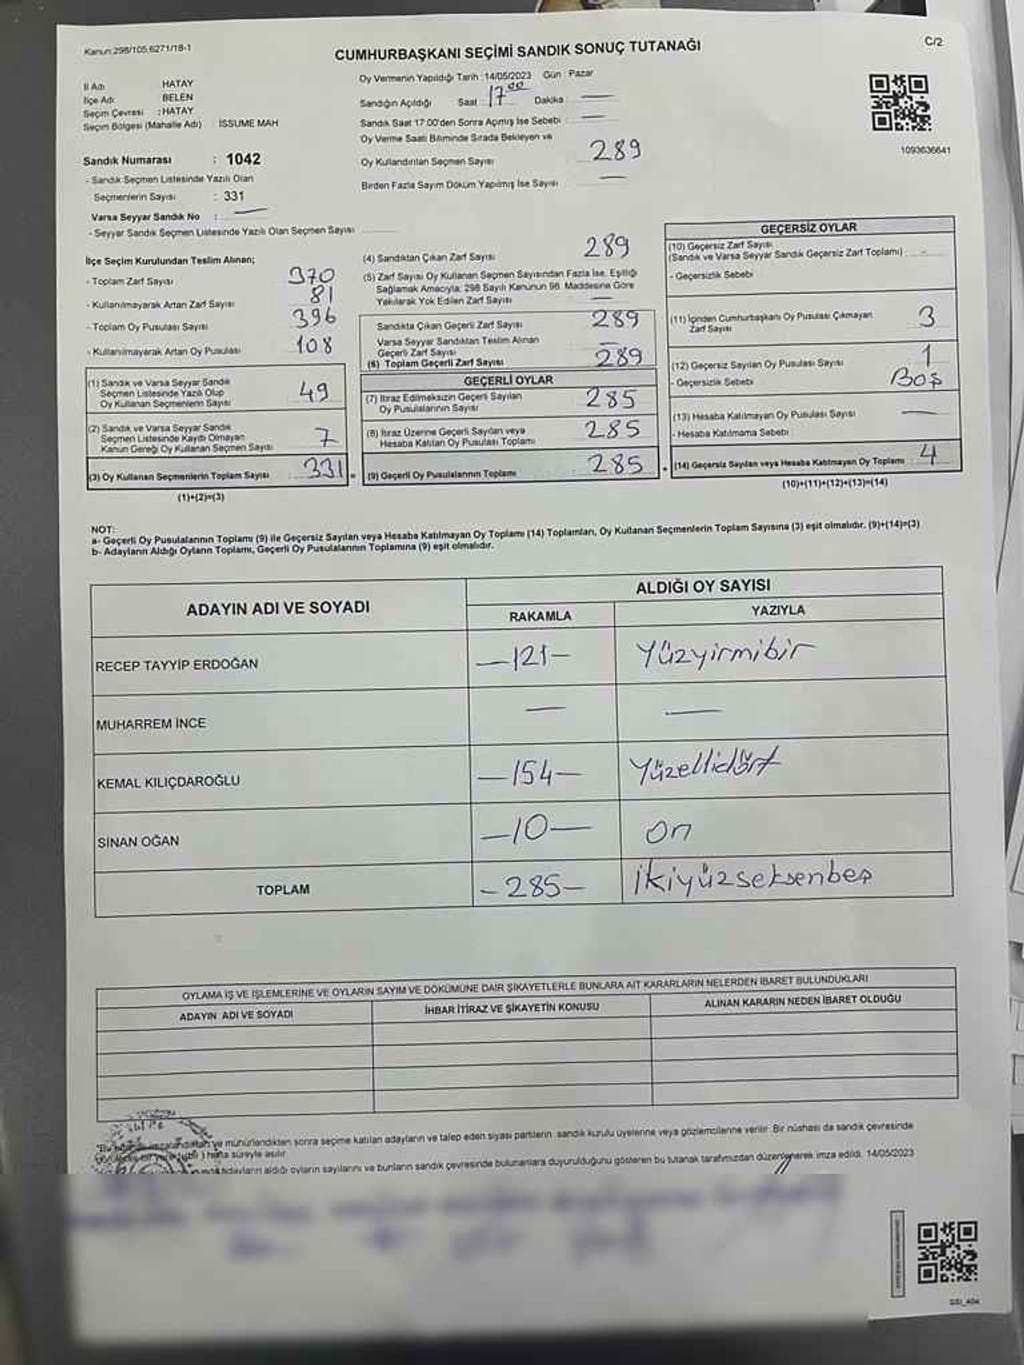 Kanun:298/105,6271/18-1
CUMHURBAŞKANI SEÇİMİ SANDIK SONUÇ TUTANAĞI
C/2
İl Adı HATAY
İlçe Adı BELEN
Seçim Çevresi : HATAY
Seçim Bölgesi (Mahalle Adı) İSSUME MAH
Sandık Numarası : 1042
- Sandık Seçmen Listesinde Yazılı Olan
Seçmenlerin Sayısı : 331
Varsa Seyyar Sandık No : —
- Seyyar Sandık Seçmen Listesinde Yazılı Olan Seçmen Sayısı
Oy Vermenin Yapıldığı Tarih :14/05/2023 Gün : Pazar
Sandığın Açıldığı Saat 17.00 Dakika —
Sandık Saat 17:00'den Sonra Açımış İse Sebebi : —
Oy Verme Saati Bitiminde Sırada Bekleyen ve
Oy Kullandırılan Seçmen Sayısı 289
Birden Fazla Sayım Döküm Yapılmış İse Sayısı —
1093636641
İlçe Seçim Kurulundan Teslim Alınan;
- Toplam Zarf Sayısı 370
- Kullanılmayarak Artan Zarf Sayısı 81
- Toplam Oy Pusulası Sayısı 396
- Kullanılmayarak Artan Oy Pusulası 108
(1) Sandık ve Varsa Seyyar Sandık
Seçmen Listesinde Yazılı Olup
Oy Kullanan Seçmenlerin Sayısı 49
(2) Sandık ve Varsa Seyyar Sandık
Seçmen Listesinde Kaydı Olmayan
Kanun Gereği Oy Kullanan Seçmen Sayısı 7
(3) Oy Kullanan Seçmenlerin Toplam Sayısı 331 =
(1)+(2)=(3)
(4) Sandıktan Çıkan Zarf Sayısı 289
(5) Zarf Sayısı Oy Kullanan Seçmen Sayısından Fazla İse, Eşitliği
Sağlamak Amacıyla; 298 Sayılı Kanunun 98. Maddesine Göre
Yakılarak Yok Edilen Zarf Sayısı —
Sandıkta Çıkan Geçerli Zarf Sayısı 289
Varsa Seyyar Sandıktan Teslim Alınan
Geçerli Zarf Sayısı —
(6) Toplam Geçerli Zarf Sayısı 289
GEÇERLİ OYLAR
(7) İtiraz Edilmeksizin Geçerli Sayılan
Oy Pusulalarının Sayısı 285
(8) İtiraz Üzerine Geçerli Sayılan veya
Hesaba Katılan Oy Pusulası Toplamı 285
(9) Geçerli Oy Pusulalarının Toplamı 285 +
GEÇERSİZ OYLAR
(10) Geçersiz Zarf Sayısı
(Sandık ve Varsa Seyyar Sandık Geçersiz Zarf Toplamı) : —
- Geçersizlik Sebebi
(11) İçinden Cumhurbaşkanı Oy Pusulası Çıkmayan
Zarf Sayısı 3
(12) Geçersiz Sayılan Oy Pusulası Sayısı 1
- Geçersizlik Sebebi Boş
(13) Hesaba Katılmayan Oy Pusulası Sayısı —
- Hesaba Katılmama Sebebi
(14) Geçersiz Sayılan veya Hesaba Katılmayan Oy Toplamı : 4
(10)+(11)+(12)+(13)=(14)
NOT:
a- Geçerli Oy Pusulalarının Toplamı (9) ile Geçersiz Sayılan veya Hesaba Katılmayan Oy Toplamı (14) Toplamları, Oy Kullanan Seçmenlerin Toplam Sayısına (3) eşit olmalıdır. (9)+(14)=(3)
b- Adayların Aldığı Oyların Toplamı, Geçerli Oy Pusulalarının Toplamına (9) eşit olmalıdır.
ADAYIN ADI VE SOYADI
ALDIĞI OY SAYISI
RAKAMLA YAZIYLA
RECEP TAYYİP ERDOĞAN —121— Yüzyirmibir
MUHARREM İNCE — —
KEMAL KILIÇDAROĞLU —154— Yüzellidört
SİNAN OĞAN —10— on
TOPLAM —285— İkiyüzseksenbeş
OYLAMA İŞ VE İŞLEMLERİNE VE OYLARIN SAYIM VE DÖKÜMÜNE DAİR ŞİKAYETLERLE BUNLARA AİT KARARLARIN NELERDEN İBARET BULUNDUKLARI
ADAYIN ADI VE SOYADI İHBAR İTİRAZ VE ŞİKAYETİN KONUSU ALINAN KARARIN NEDEN İBARET OLDUĞU
ve mühürlendikten sonra seçime katılan adayların ve talep eden siyasi partilerin sandık kurulu üyelerine veya gözlemcilerine verilir. Bir nüshası da sandık çevresinde
) hafta süreyle asılır.
adayların aldığı oyların sayılarını ve bunların sandık çevresinde bulunanlara duyurulduğunu gösteren bu tutanak tarafımızdan düzenlenerek imza edildi. 14/05/2023